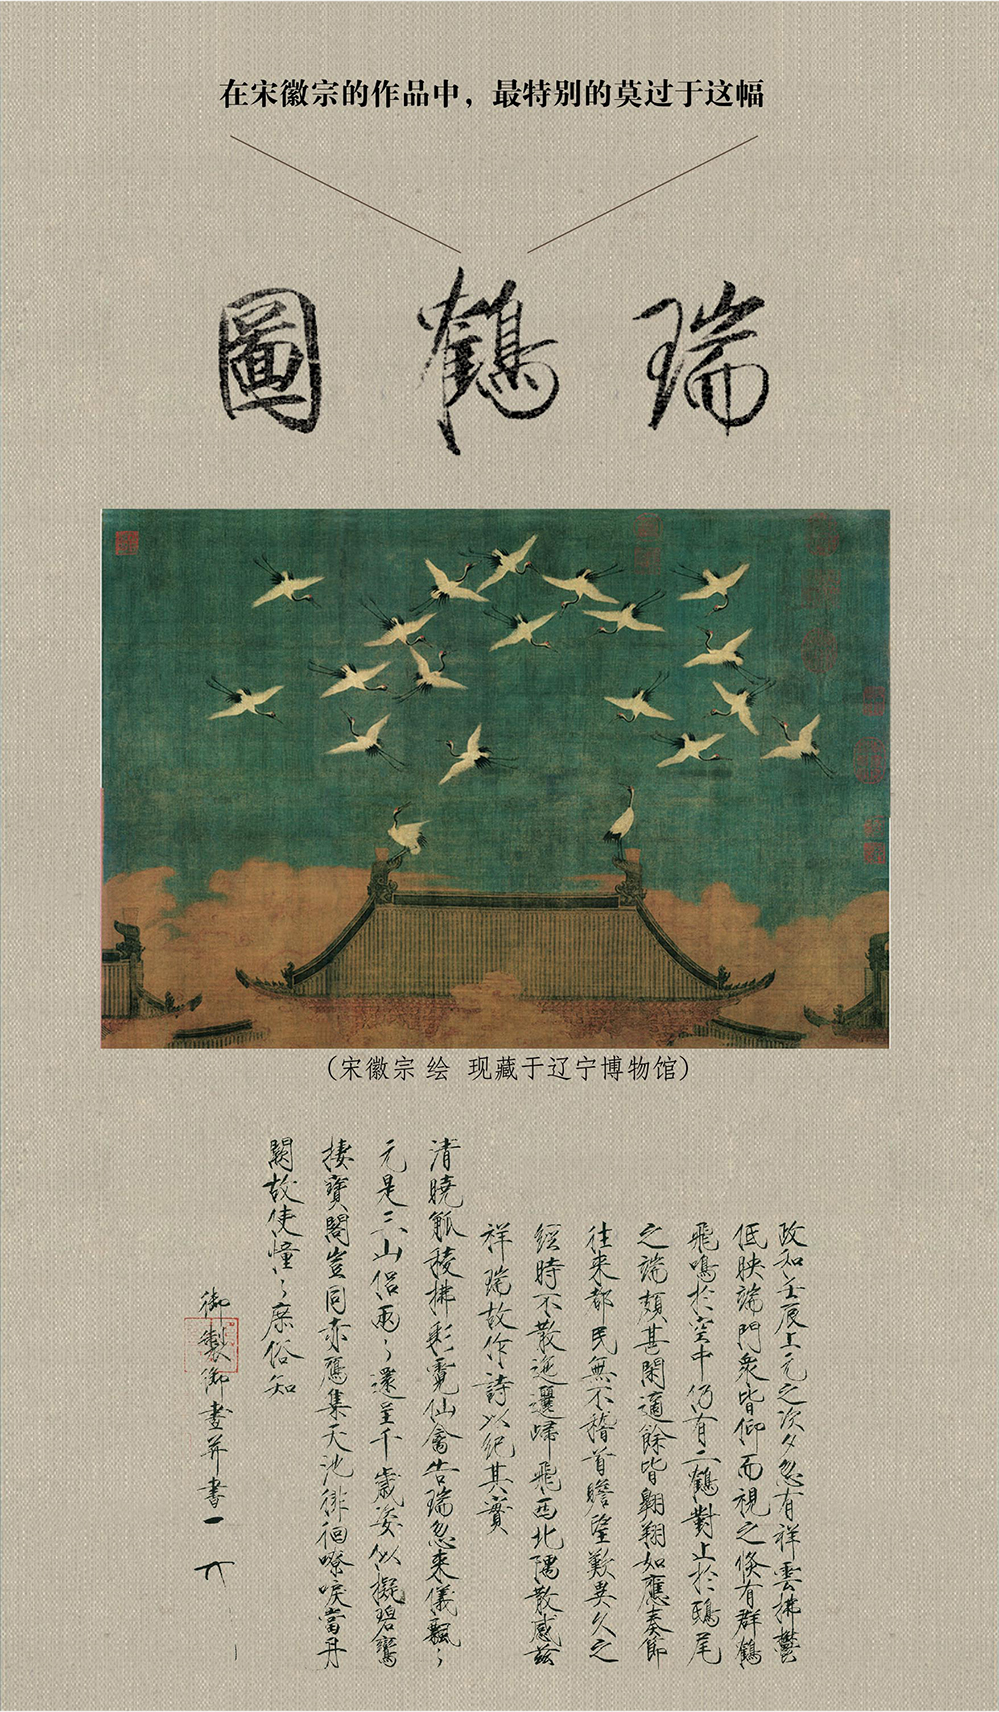 在宋徽宗的作品中，最特别的莫过于这幅
瑞鶴圖
（宋徽宗 绘 现藏于辽宁博物馆）
政和壬辰上元之次夕忽有祥雲拂鬱
低映端門衆皆仰而視之倏有群鶴
飛鳴於空中仍有二鶴對止於鴟尾
之端頗甚閑適餘皆翱翔如應奏節
往來都民無不稽首瞻望歎異久之
經時不散迤邐歸飛西北隅散感茲
祥瑞故作詩以紀其實
清曉觚稜拂彩霓仙禽告瑞忽來儀飄〻
元是三山侶兩〻還呈千歲姿似擬碧鸞
棲寶閣豈同赤鴈集天池徘徊嘹唳當丹
闕故使憧〻庶俗知
御製御畫并書